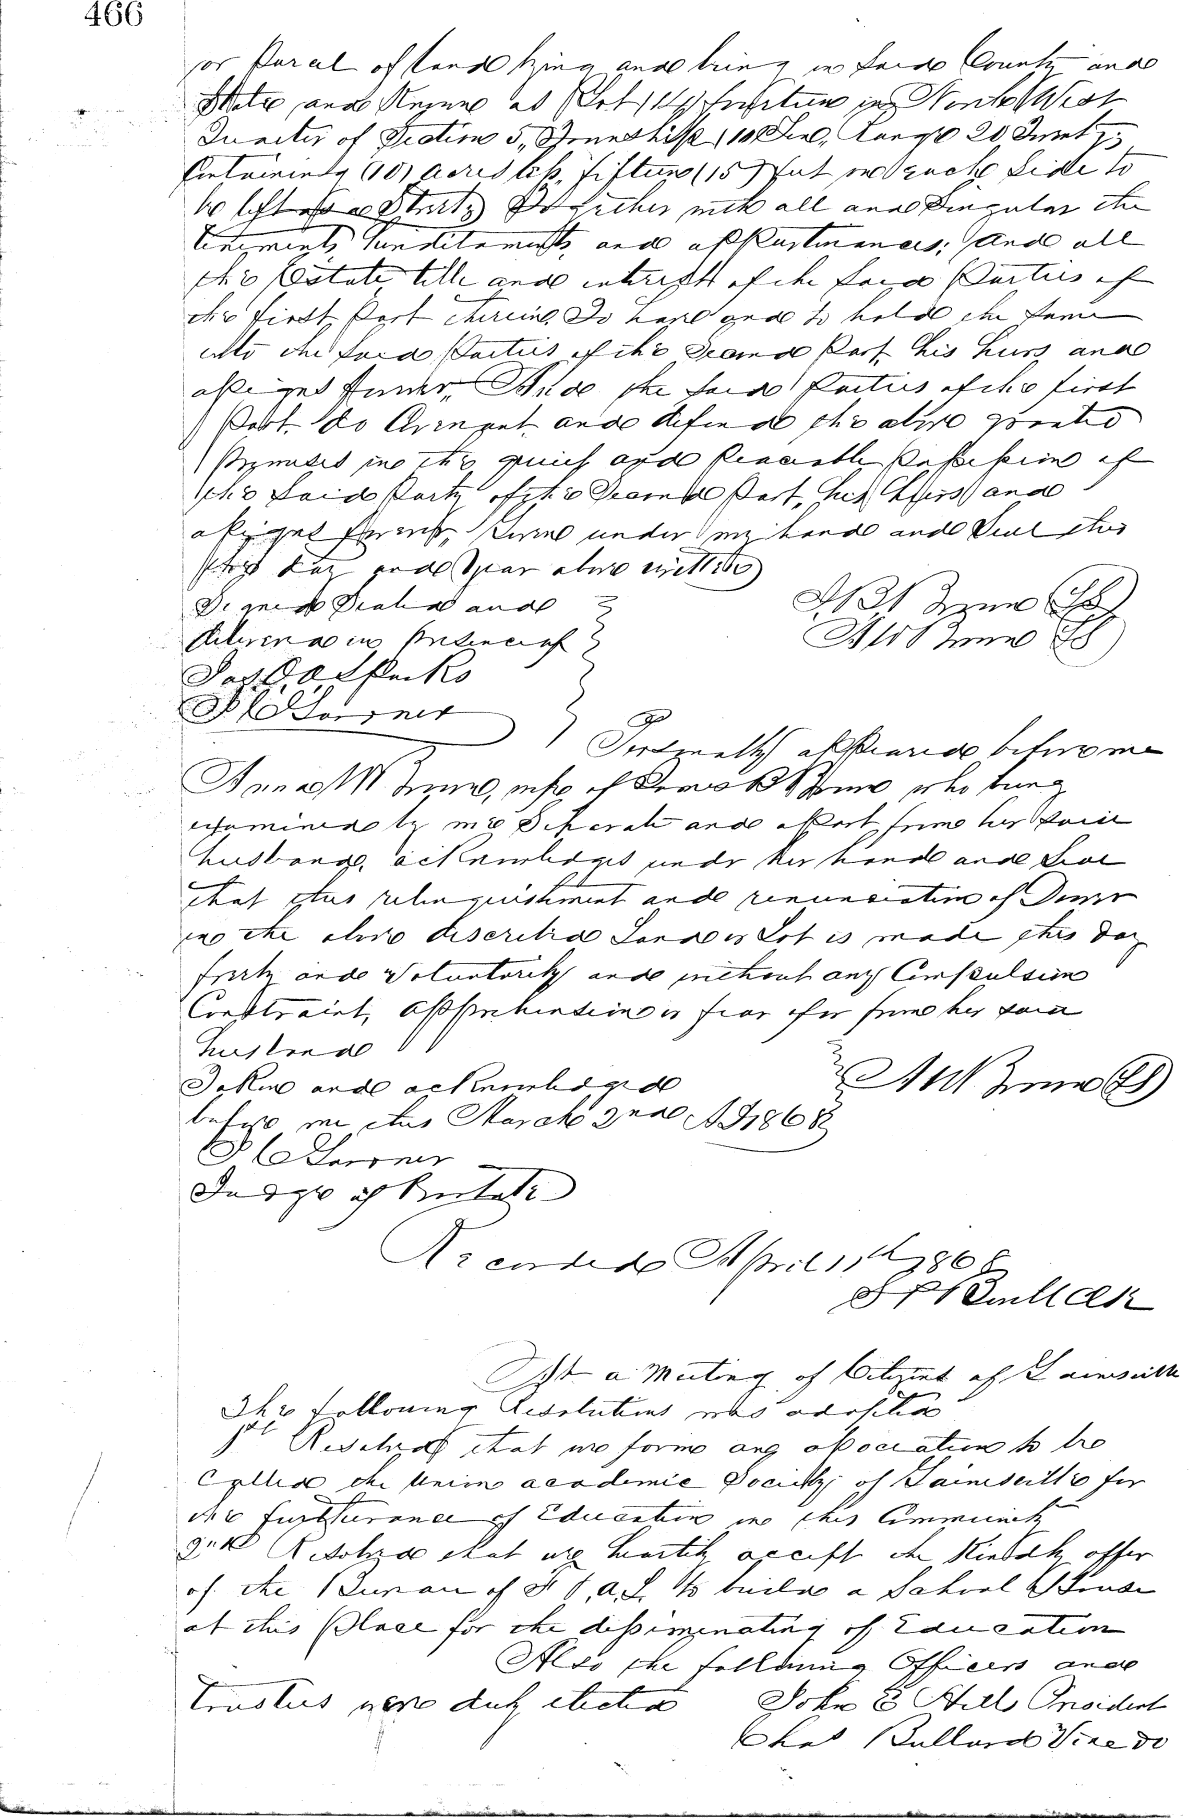 466
or Parcel of land lying and being in said County and
State and Known as Lot (14) fourteen in North West
Quarter of Section 5, Township (10) Ten, Range 20 Twenty,
Containing (10) acres less fifteen (15) feet on each side to
be left as a Street, Together with all and Singular the
tenements, hereditaments, and appurtinances; And all
the Estate title and interest of the said Parties of
the first Part therein. To have and to hold the same
unto the said Parties of the Second Part, his heirs and
assigns forever, And the said Parties of the first
Part, do Covenant and defend the above granted
Premises in the quiet and Peaceable Possession of
the said Party of the Second Part, his heirs and
assigns forever, Given under my hand and Seal this
the day and Year above written
Signed Sealed and
delivered in presence of
A W
Personally appeared before me
Anna W who being
examined by me Seperate and apart from her said
husband, acknowledges under her hand and Seal
that this relinquishment and renunciation of Dower
in the above described Land or Lot is made this day
freely and Voluntarily and without any Compulsion
Constraint, Apprehension or fear of or from her said
husband
Taken and acknowledged
before me this March 2nd AD 1868
Judge of Probate
Recorded April 11th 1868
Clk
At a Meeting of Citizens of Gainesville
The following Resolutions was adopted
1st Resolved that we form an association to be
Called the Union academic Society of Gainesville for
the furtherance of Education in this Community
2nd Resolved that we heartily accept the Kindly offer
of the Bureau of F. A. L. to build a School House
at this Place for the disseminating of Education
Also the following Officers and
Trustees were duly elected John E Hills President
Chas Bullard Vice Do